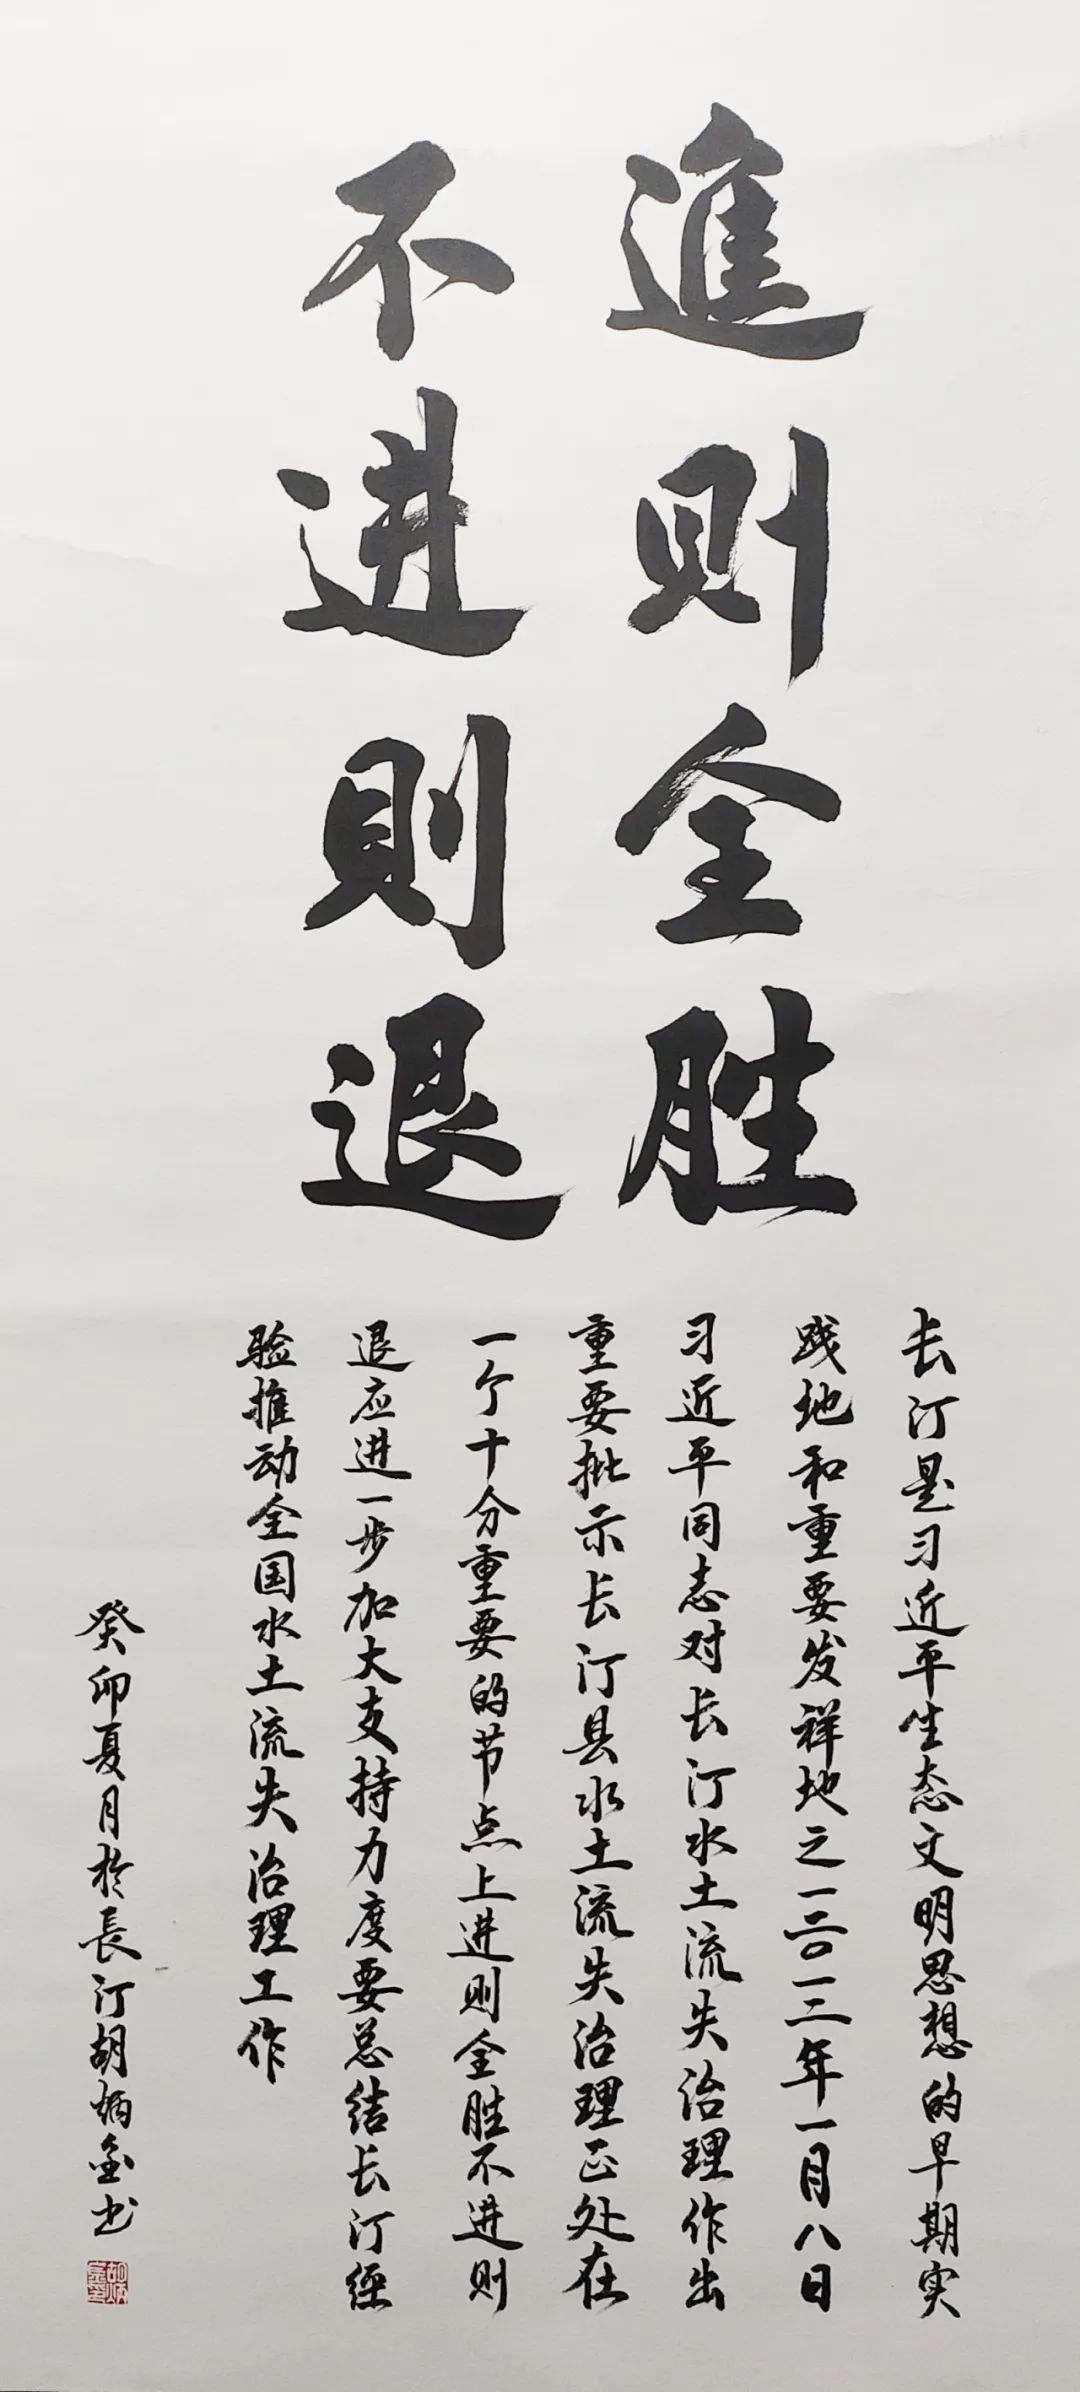 進則全胜
不进則退
长汀是习近平生态文明思想的早期实
践地和重要发祥地之一二〇一二年一月八日
习近平同志对长汀水土流失治理作出
重要批示长汀县水土流失治理正处在
一个十分重要的节点上进则全胜不进则
退应进一步加大支持力度要总结长汀经
验推动全国水土流失治理工作
癸卯夏月於長汀胡炳金书